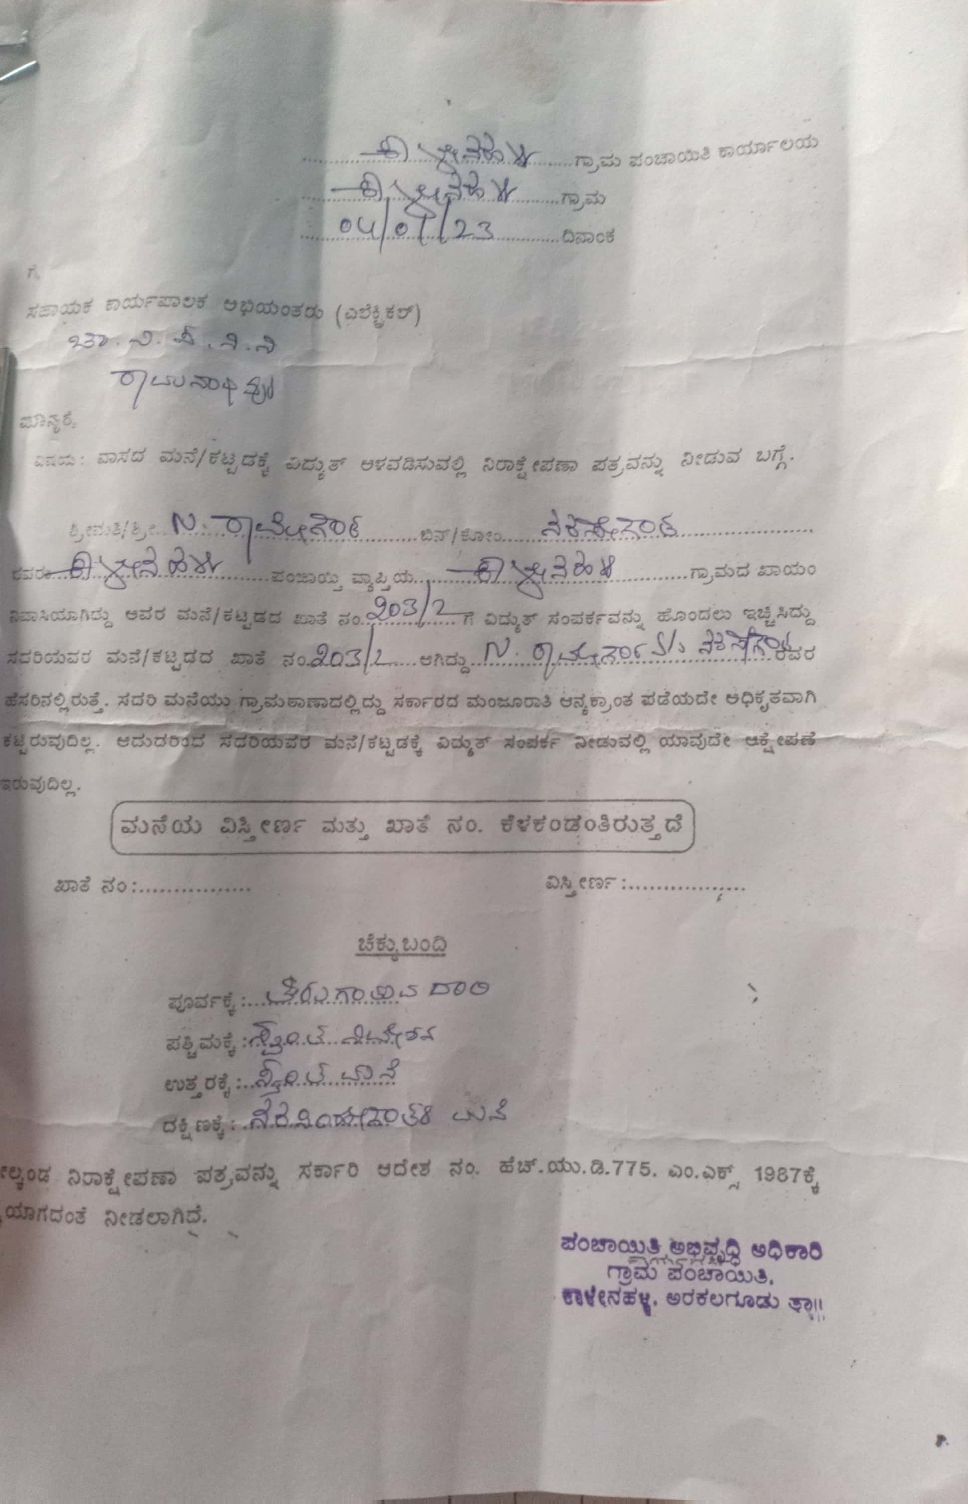 ಕಾಳೇನಹಳ್ಳಿ ಗ್ರಾಮ ಪಂಚಾಯಿತಿ ಕಾರ್ಯಾಲಯ
ಕಾಳೇನಹಳ್ಳಿ ಗ್ರಾಮ
04/01/23 ದಿನಾಂಕ
ಗೆ,
ಸಹಾಯಕ ಕಾರ್ಯಪಾಲಕ ಅಭಿಯಂತರರು (ಎಲೆಕ್ಟ್ರಿಕಲ್)
ಚಾ.ವಿ.ಸ.ನಿ.ನಿ
ರಾಮನಾಥಪುರ
ಮಾನ್ಯರೆ,
ವಿಷಯ: ವಾಸದ ಮನೆ/ಕಟ್ಟಡಕ್ಕೆ ವಿದ್ಯುತ್ ಅಳವಡಿಸುವಲ್ಲಿ ನಿರಾಕ್ಷೇಪಣಾ ಪತ್ರವನ್ನು ನೀಡುವ ಬಗ್ಗೆ.
ಶ್ರೀಮತಿ/ಶ್ರೀ N. ರಾಮೇಗೌಡ ಬಿನ್/ಕೋಂ
ರವರು ಕಾಳೇನಹಳ್ಳಿ ಪಂಚಾಯ್ತಿ ವ್ಯಾಪ್ತಿಯ ಕಾಳೇನಹಳ್ಳಿ ಗ್ರಾಮದ ಖಾಯಂ
ನಿವಾಸಿಯಾಗಿದ್ದು ಅವರ ಮನೆ/ಕಟ್ಟಡದ ಖಾತೆ ನಂ. 203/2 ಗೆ ವಿದ್ಯುತ್ ಸಂಪರ್ಕವನ್ನು ಹೊಂದಲು ಇಚ್ಚಿಸಿದ್ದು
ಸದರಿಯವರ ಮನೆ/ಕಟ್ಟಡದ ಖಾತೆ ನಂ. 203/2 ಆಗಿದ್ದು N. ರಾಮೇಗೌಡ S/o ರವರ
ಹೆಸರಿನಲ್ಲಿರುತ್ತೆ. ಸದರಿ ಮನೆಯು ಗ್ರಾಮಠಾಣಾದಲ್ಲಿದ್ದು ಸರ್ಕಾರದ ಮಂಜೂರಾತಿ ಆನ್ಯಕ್ರಾಂತ ಪಡೆಯದೇ ಅಧಿಕೃತವಾಗಿ
ಕಟ್ಟಿರುವುದಿಲ್ಲ. ಆದುದರಿಂದ ಸದರಿಯವರ ಮನೆ/ಕಟ್ಟಡಕ್ಕೆ ವಿದ್ಯುತ್ ಸಂಪರ್ಕ ನೀಡುವಲ್ಲಿ ಯಾವುದೇ ಆಕ್ಷೇಪಣೆ
ಇರುವುದಿಲ್ಲ.
ಮನೆಯ ವಿಸ್ತೀರ್ಣ ಮತ್ತು ಖಾತೆ ನಂ. ಕೆಳಕಂಡಂತಿರುತ್ತದೆ
ಖಾತೆ ನಂ:................ ವಿಸ್ತೀರ್ಣ:..................
ಚೆಕ್ಕುಬಂದಿ
ಪೂರ್ವಕ್ಕೆ: ತಿರುಗಾಡುವ ದಾರಿ
ಪಶ್ಚಿಮಕ್ಕೆ: ಸ್ವಂತ ನಿವೇಶನ
ಉತ್ತರಕ್ಕೆ: ಸ್ವಂತ ಮನೆ
ದಕ್ಷಿಣಕ್ಕೆ: ಮನೆ
ಲ್ಕಂಡ ನಿರಾಕ್ಷೇಪಣಾ ಪತ್ರವನ್ನು ಸರ್ಕಾರಿ ಆದೇಶ ನಂ. ಹೆಚ್.ಯು.ಡಿ.775. ಎಂ.ಎಕ್ಸ್ 1987ಕ್ಕೆ
ಯಾಗದಂತೆ ನೀಡಲಾಗಿದೆ.
ಪಂಚಾಯಿತಿ ಅಭಿವೃದ್ಧಿ ಅಧಿಕಾರಿ
ಗ್ರಾಮ ಪಂಚಾಯಿತಿ,
ಕಾಳೇನಹಳ್ಳಿ, ಅರಕಲಗೂಡು ತಾ||